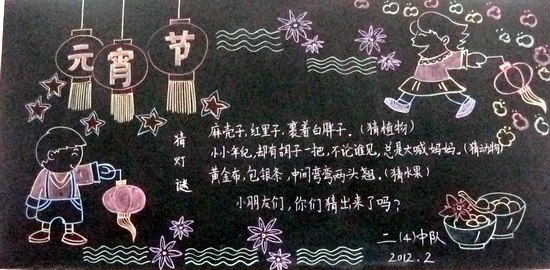 元宵节
猜灯谜
麻壳子,红里子,裹着白胖子。(猜植物)
小小年纪,却有胡子一把,不论谁见,总是大喊妈妈。(猜动物)
黄金布,包银条,中间弯弯两头翘。(猜水果)
小朋友们,你们猜出来了吗?
二(4)中队
2012.2